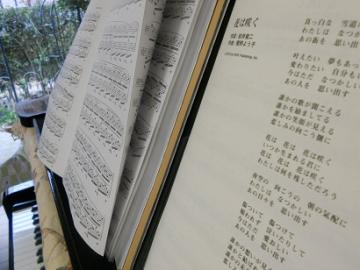 花は咲く
作詞：岩井俊二
作曲：菅野よう子
真っ白な 雪道に
わたしは なつかし
あの街を 思い出
叶えたい 夢もあっ
変わりたい 自分も
今はただ なつかしい
あの人を 思い出す
誰かの歌が聞こえる
誰かを励ましてる
誰かの笑顔が見える
悲しみの向こう側に
花は 花は 花は咲く
いつか生まれる君に
花は 花は 花は咲く
わたしは何を残しただろう
夜空の 向こうの 朝の気配に
わたしは なつかしい
あの日々を 思い出す
傷ついて 傷つけて
報われず 泣いたりして
今はただ 愛おしい
あの人を 思い出す
誰かの想いが